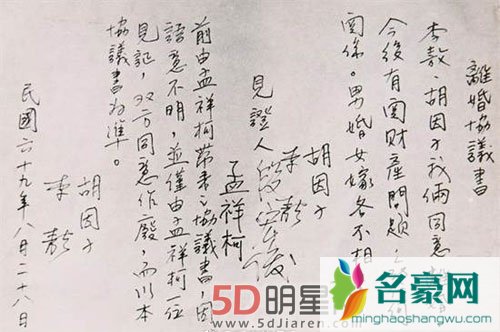 離婚協議書
李敖、胡因子我倆同意
今後有関财產問題、
関係。男婚女嫁各不相
胡因子
李敖
見證人段宏俊
孟祥柯
前由孟祥柯帶来之協議書,因
語意不明,並僅由孟祥柯一位
見証,双方同意作廢,而以本
協議書為準。
胡因子
李敖
民國六十九年八月二十八日
5D明星
www.5dJiaren.com
名豪网
minghaoshangwu.com